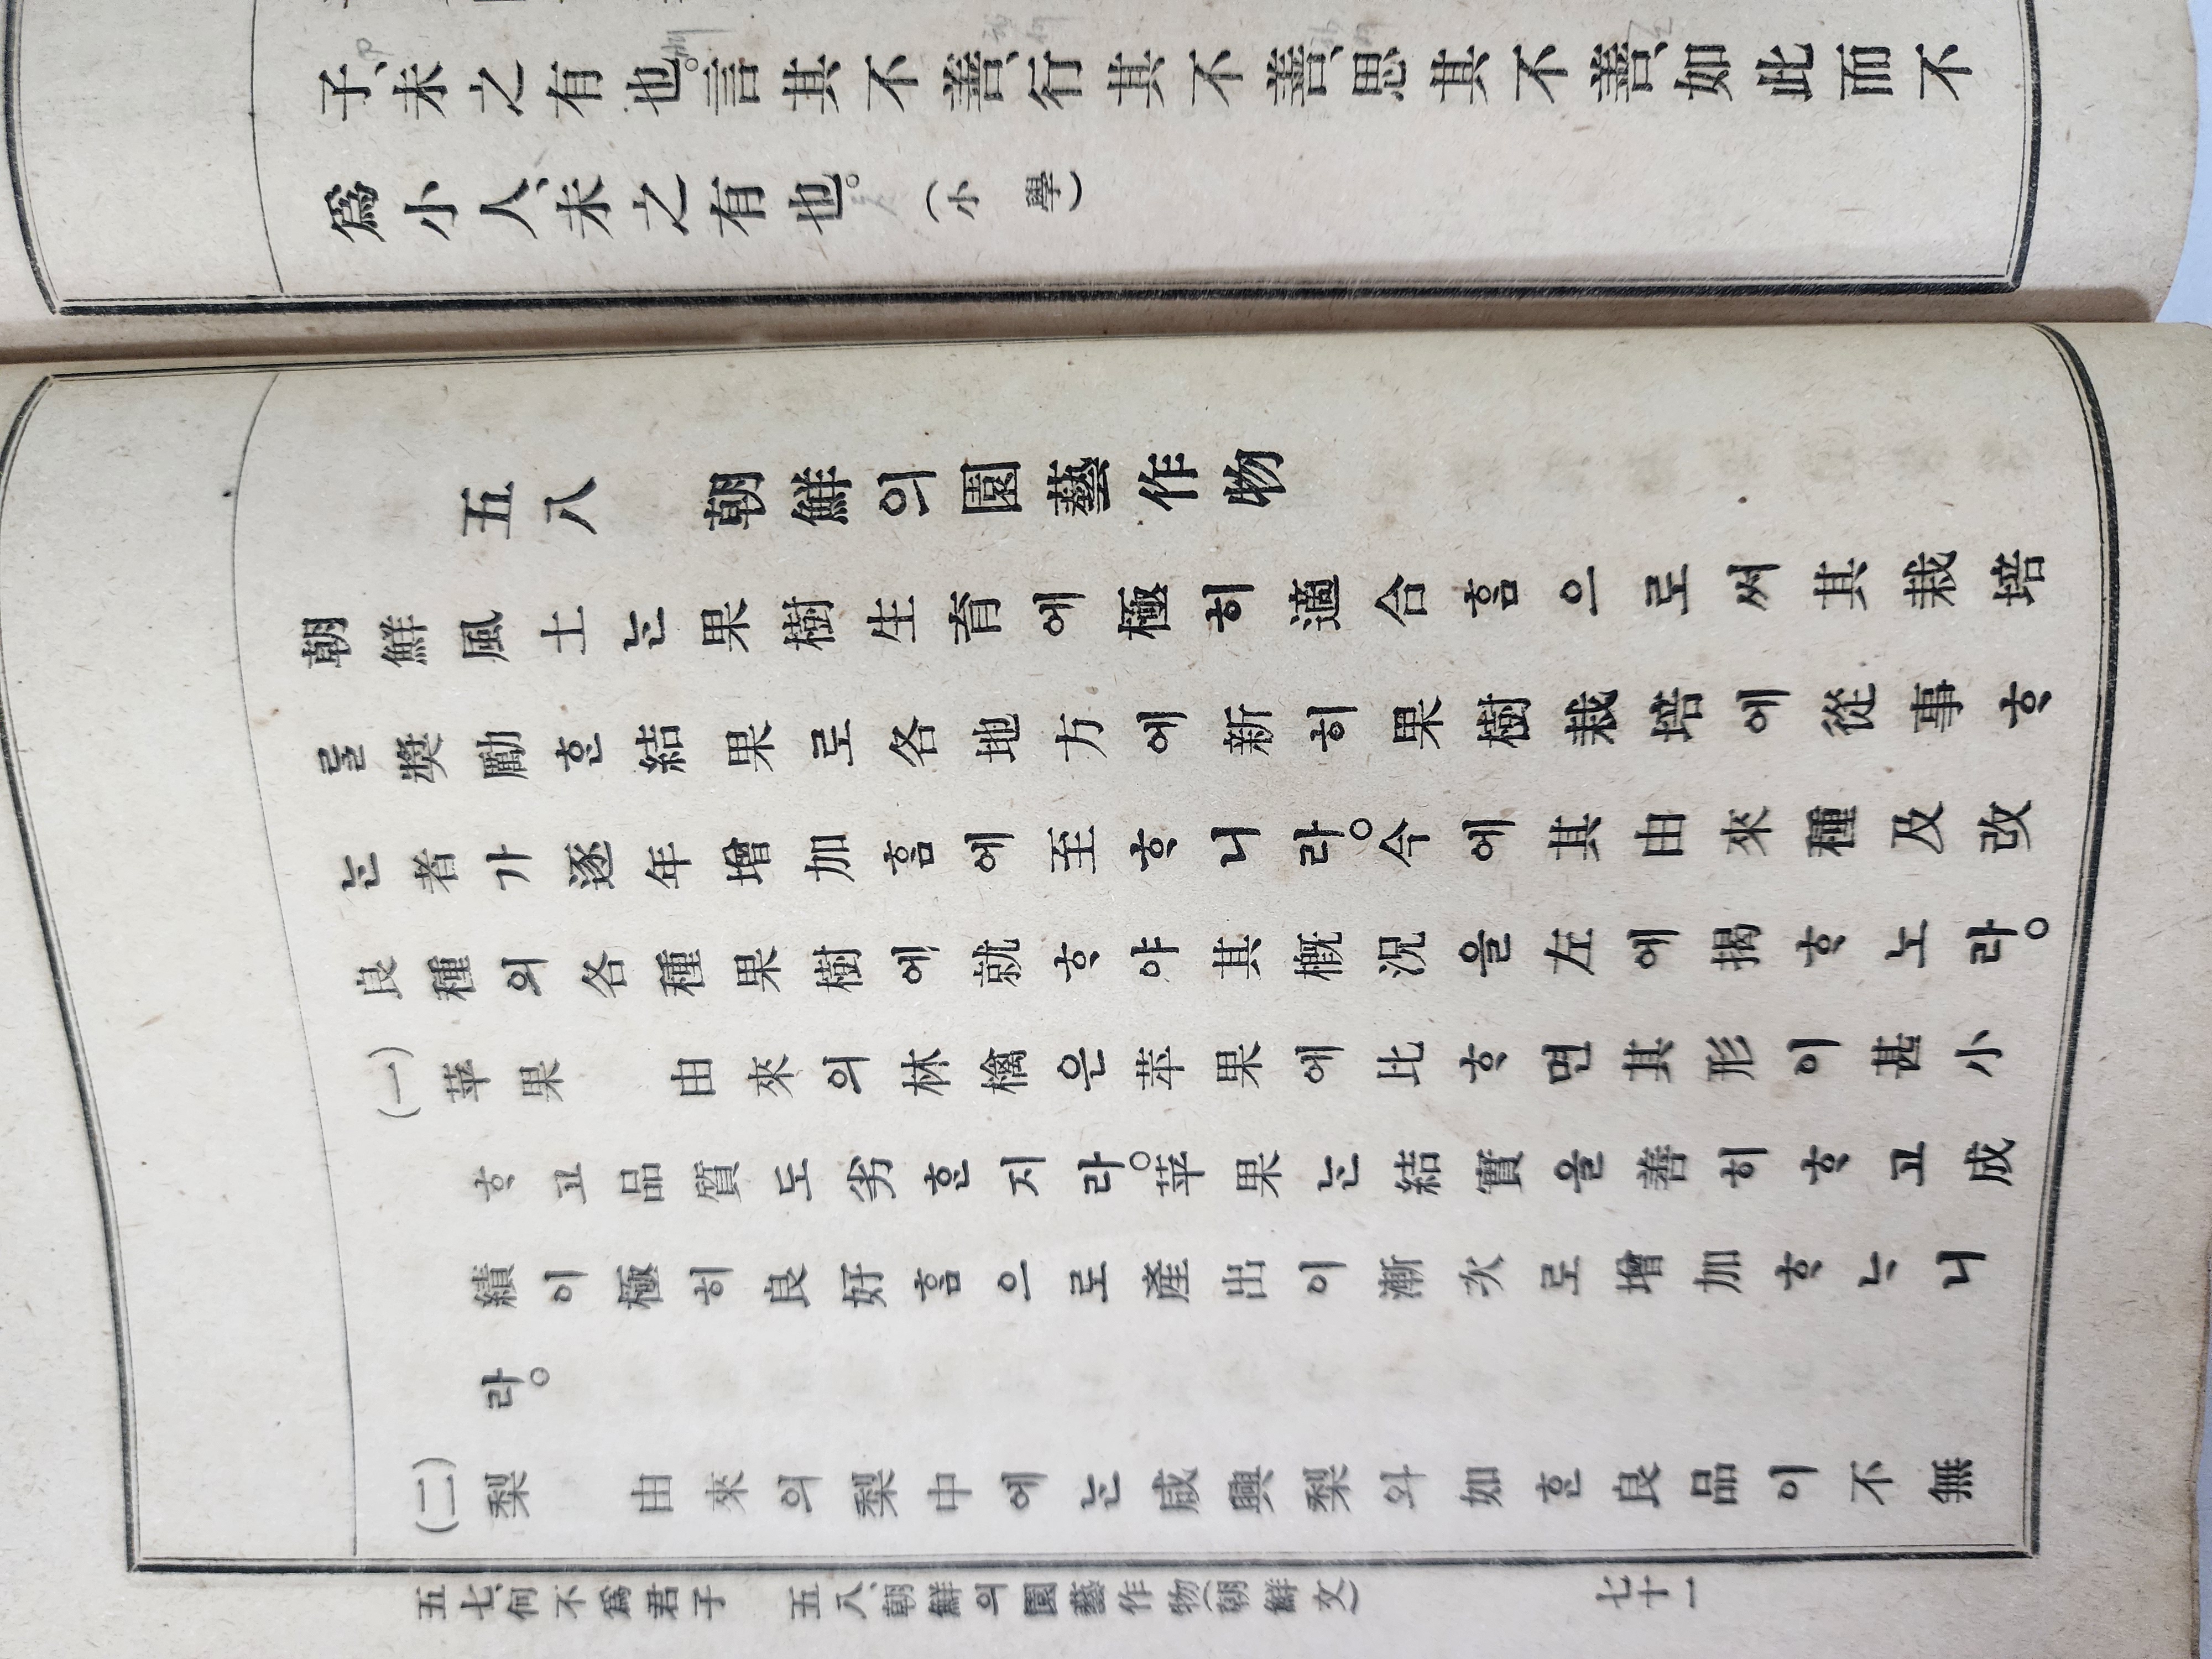 子、未之有也。言其不善、行其不善、思其不善、如此而不
爲小人、未之有也。 (小學)
五八 朝鮮의園藝作物
朝鮮風土ᄂᆞᆫ果樹生育에極히適合ᄒᆞᆷ으로써其栽培
ᄅᆞᆯ獎勵ᄒᆞᆫ結果로各地方에新히果樹栽培에從事ᄒᆞ
ᄂᆞᆫ者가逐年增加ᄒᆞᆷ에至ᄒᆞ니라。今에其由來種及改
良種의各種果樹에就ᄒᆞ야其槪況을左에揭ᄒᆞ노라。
(一)苹果 由來의林檎은苹果에比ᄒᆞ면其形이甚小
ᄒᆞ고品質도劣ᄒᆞᆫ지라。苹果ᄂᆞᆫ結實을善히ᄒᆞ고成
績이極히良好ᄒᆞᆷ으로產出이漸次로增加ᄒᆞᄂᆞ니
라。
(二)梨 由來의梨中에ᄂᆞᆫ咸興梨와如ᄒᆞᆫ良品이不無
五七、何不爲君子 五八、朝鮮의園藝作物(朝鮮文) 七十一